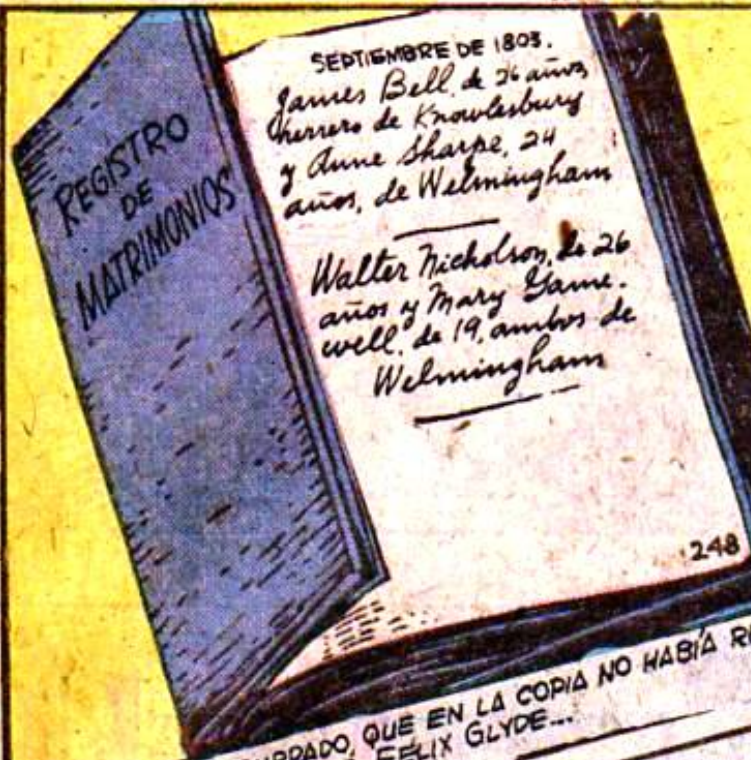 REGISTRO
DE
MATRIMONIOS
SEPTIEMBRE DE 1803.
James Bell, de 26 años
herrero de Knowlesbury
y Anne Sharpe, 24
años, de Welmingham
Walter Nicholson, de 26
años y Mary Game-
well, de 19, ambos de
Welmingham
248
QUE EN LA COPIA NO HABÍA
FÉLIX GLYDE...